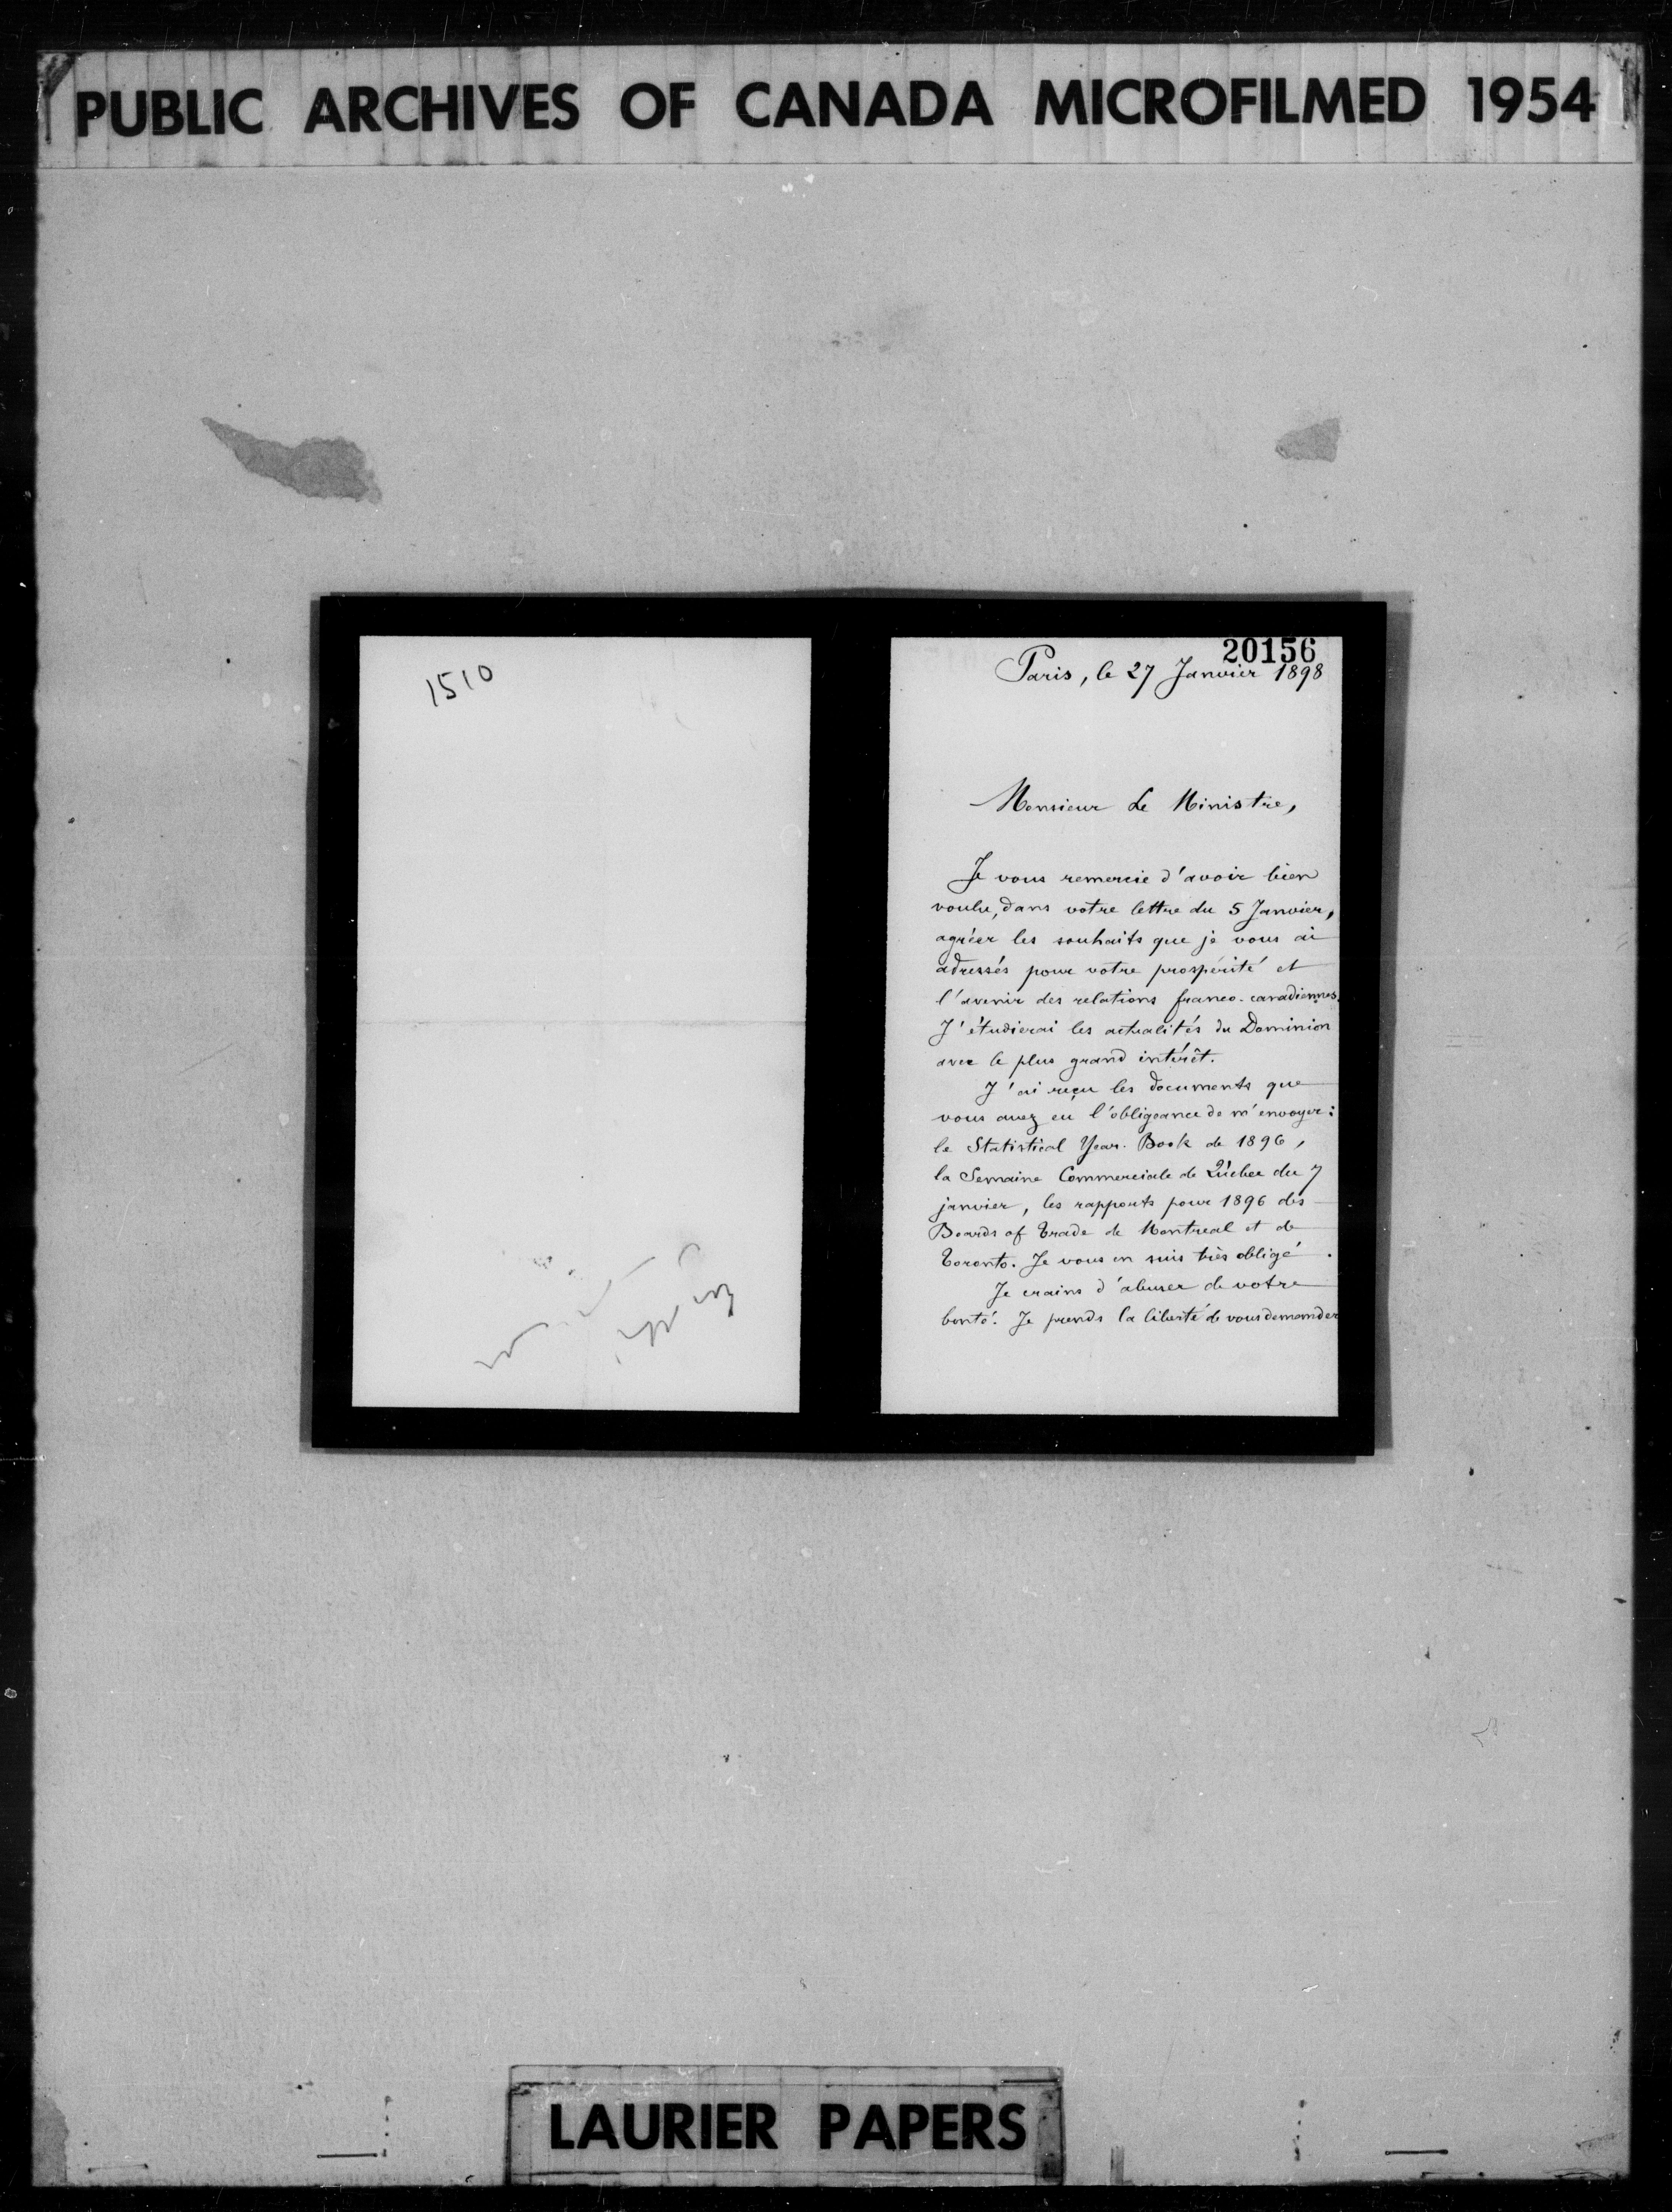 PUBLIC ARCHIVES OF CANADA MICROFILMED 1954
1510
20156
Paris, le 27 Janvier 1898
Monsieur Le Ministre,
Je vous remercie d'avoir bien
voulu, dans votre lettre du 5 Janvier,
agréer les souhaits que je vous ai
adressés pour votre prospérité et
l'avenir des relations franco-canadiennes.
J'étudierai les actualités du Dominion
avec le plus grand intérêt.
J'ai reçu les documents que
vous avez eu l'obligeance de m'envoyer:
le Statistical Year-Book de 1896,
la Semaine Commerciale de Québec du 7
janvier, les rapports pour 1896 des
Boards of Trade de Montreal et de
Toronto. Je vous en suis très obligé.
Je crains d'abuser de votre
bonté. Je prends la liberté de vous demander
LAURIER PAPERS